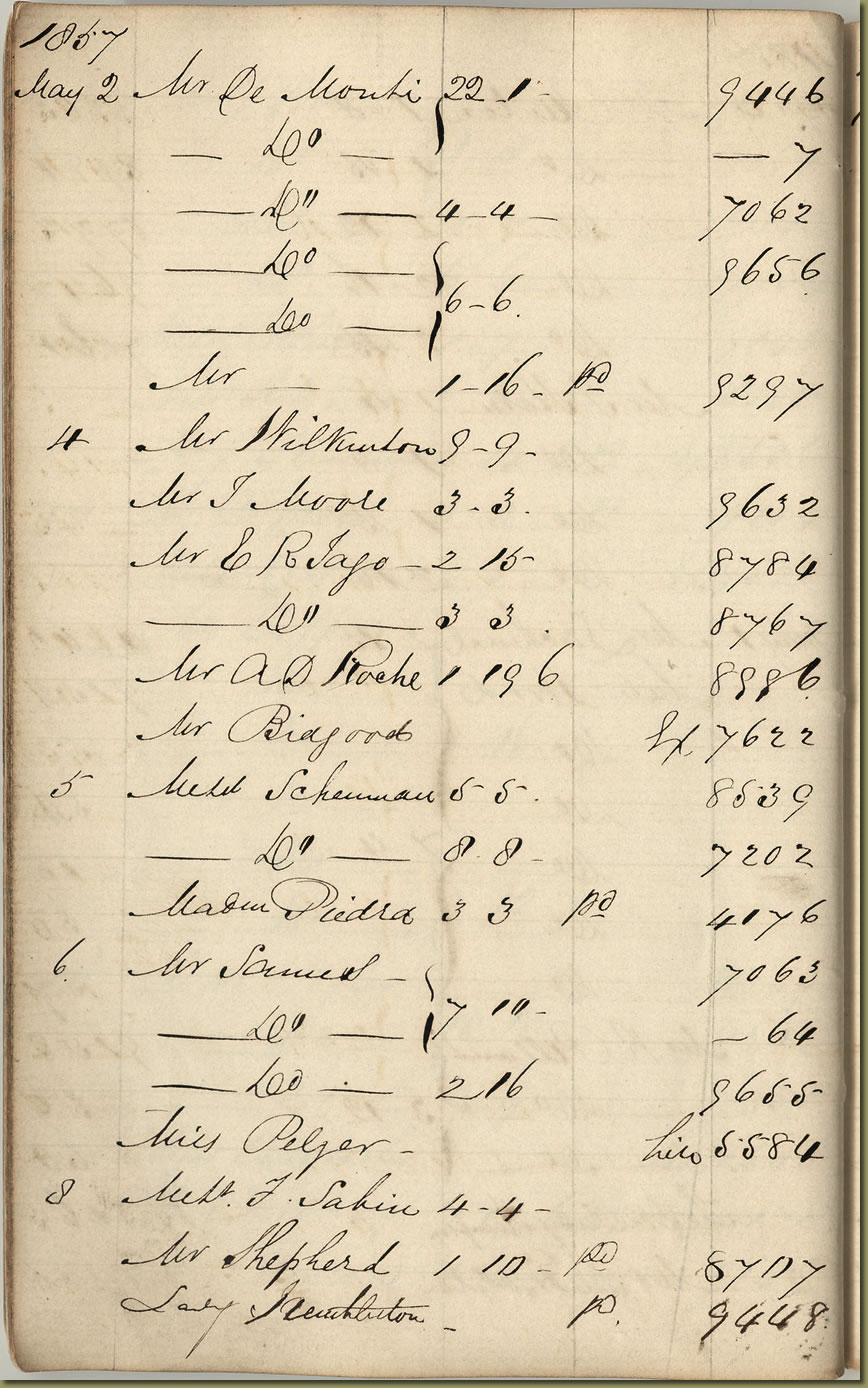 1857
May 2 Mr De Monti 22 - 1 - 9446
— Do — — 7
— Do — 4 - 4 — 7062
— Do — 9656
— Do — 6 - 6.
Mr — 1 - 16 - pd 9297
4 Mr Wilkinson 9 - 9 -
Mr T Moore 3 - 3. 9632
Mr E R Jago — 2 15 8784
— Do — 3 3. 8767
Mr A D Roche 1 19 6 8996
Mr Bidgood Ex 7622
5 Messrs Scheurman 5 5. 8539
— Do — 8 8 - 7202
Madm Piedra 3 3 pd 4176
6. Mr Samuel - 7063
— Do — 7 10 - — 64
— Do — 2 16 9655
Miss Pelzer - hire 5584
8 Messrs. F. Sabin 4 - 4 -
Mr Shepherd 1 10 - pd 8707
Lady - p. 9448